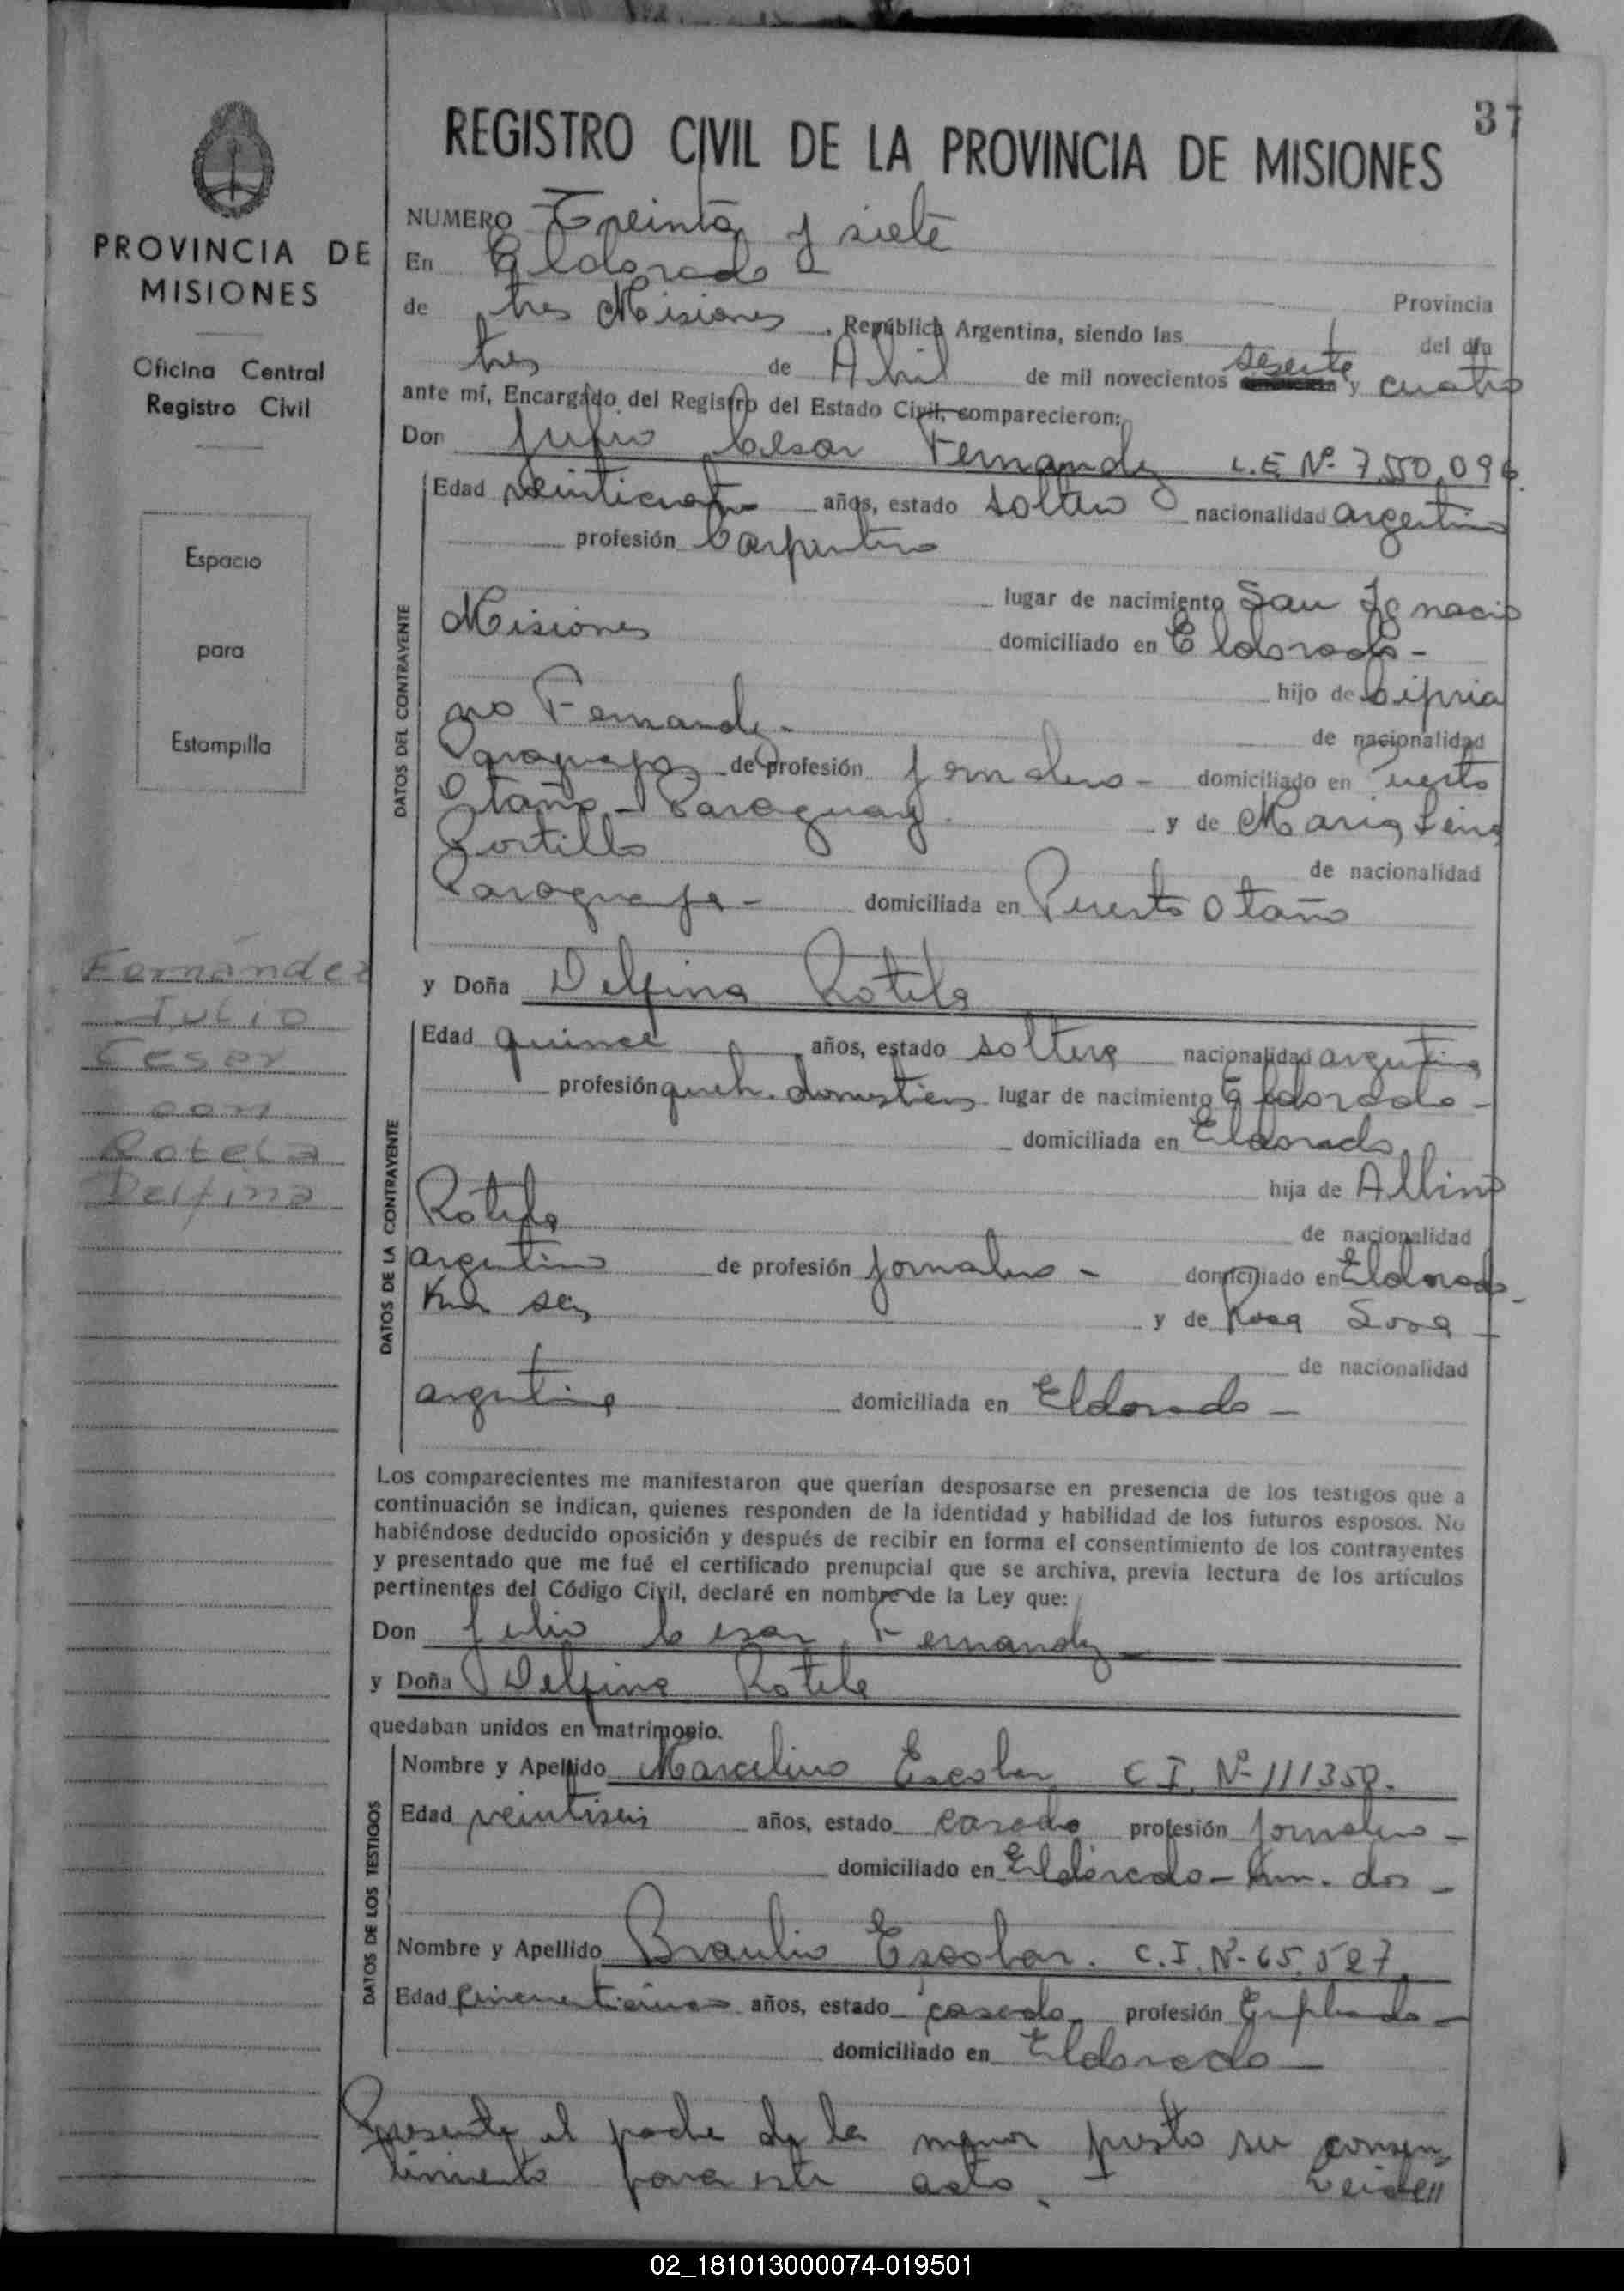 37
REGISTRO CIVIL DE LA PROVINCIA DE MISIONES
PROVINCIA DE
MISIONES
Oficina Central
Registro Civil
Espacio
para
Estampilla
Fernández
Julio
Cesar
con
Rotela
Delfina
NUMERO Treinta y siete
En Eldorado
Provincia
de Misiones, República Argentina, siendo las
del día
tres de Abril de mil novecientos sesenta y cuatro
ante mí, Encargado del Registro del Estado Civil, comparecieron:
Don Julio Cesar Fernandez L.E Nº 7.550.096
DATOS DEL CONTRAYENTE
Edad veinticuatro años, estado soltero nacionalidad argentino
profesión Carpintero
lugar de nacimiento San Ignacio
Misiones domiciliado en Eldorado -
hijo de Cipria
no Fernandez -
de nacionalidad
Paraguayo, de profesión jornalero - domiciliado en Puerto
Otaño - Paraguay. y de Maria
Portillo
de nacionalidad
Paraguaya - domiciliada en Puerto Otaño
y Doña Delfina Rotela
DATOS DE LA CONTRAYENTE
Edad quince años, estado soltera nacionalidad argentina
profesión queh. domesticos lugar de nacimiento Eldorado -
domiciliada en Eldorado
hija de Albino
Rotela
de nacionalidad
argentino de profesión jornalero - domiciliado en Eldorado
Km seis y de Rosa Sosa -
de nacionalidad
argentina domiciliada en Eldorado -
Los comparecientes me manifestaron que querían desposarse en presencia de los testigos que a
continuación se indican, quienes responden de la identidad y habilidad de los futuros esposos. No
habiéndose deducido oposición y después de recibir en forma el consentimiento de los contrayentes
y presentado que me fué el certificado prenupcial que se archiva, previa lectura de los artículos
pertinentes del Código Civil, declaré en nombre de la Ley que:
Don Julio Cesar Fernandez
y Doña Delfina Rotela
quedaban unidos en matrimonio.
DATOS DE LOS TESTIGOS
Nombre y Apellido Marcelino Escobar C.I. Nº 111358.
Edad veintiseis años, estado casado profesión jornalero -
domiciliado en Eldorado - Km. dos -
Nombre y Apellido Braulio Escobar. C.I. Nº 65.527
Edad años, estado casado profesión Empleado -
domiciliado en Eldorado -
Presente el padre de la menor presto su consen
timiento para este acto. -
02_181013000074-019501